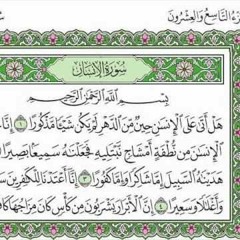 الجزء التاسع والعشرون
سورة الإنسان
بسم الله الرحمن الرحيم
هل أتى على الإنسان حين من الدهر لم يكن شيئا مذكورا ١ إنا
الإنسان من نطفة أمشاج نبتليه فجعلناه سميعا بصيرا
هديناه السبيل إما شاكرا وإما كفورا ٣ إنا أعتدنا للكافرين سلاسلا
وأغلالا وسعيرا ٤ إن الأبرار يشربون من كأس كان مزاجها كافورا